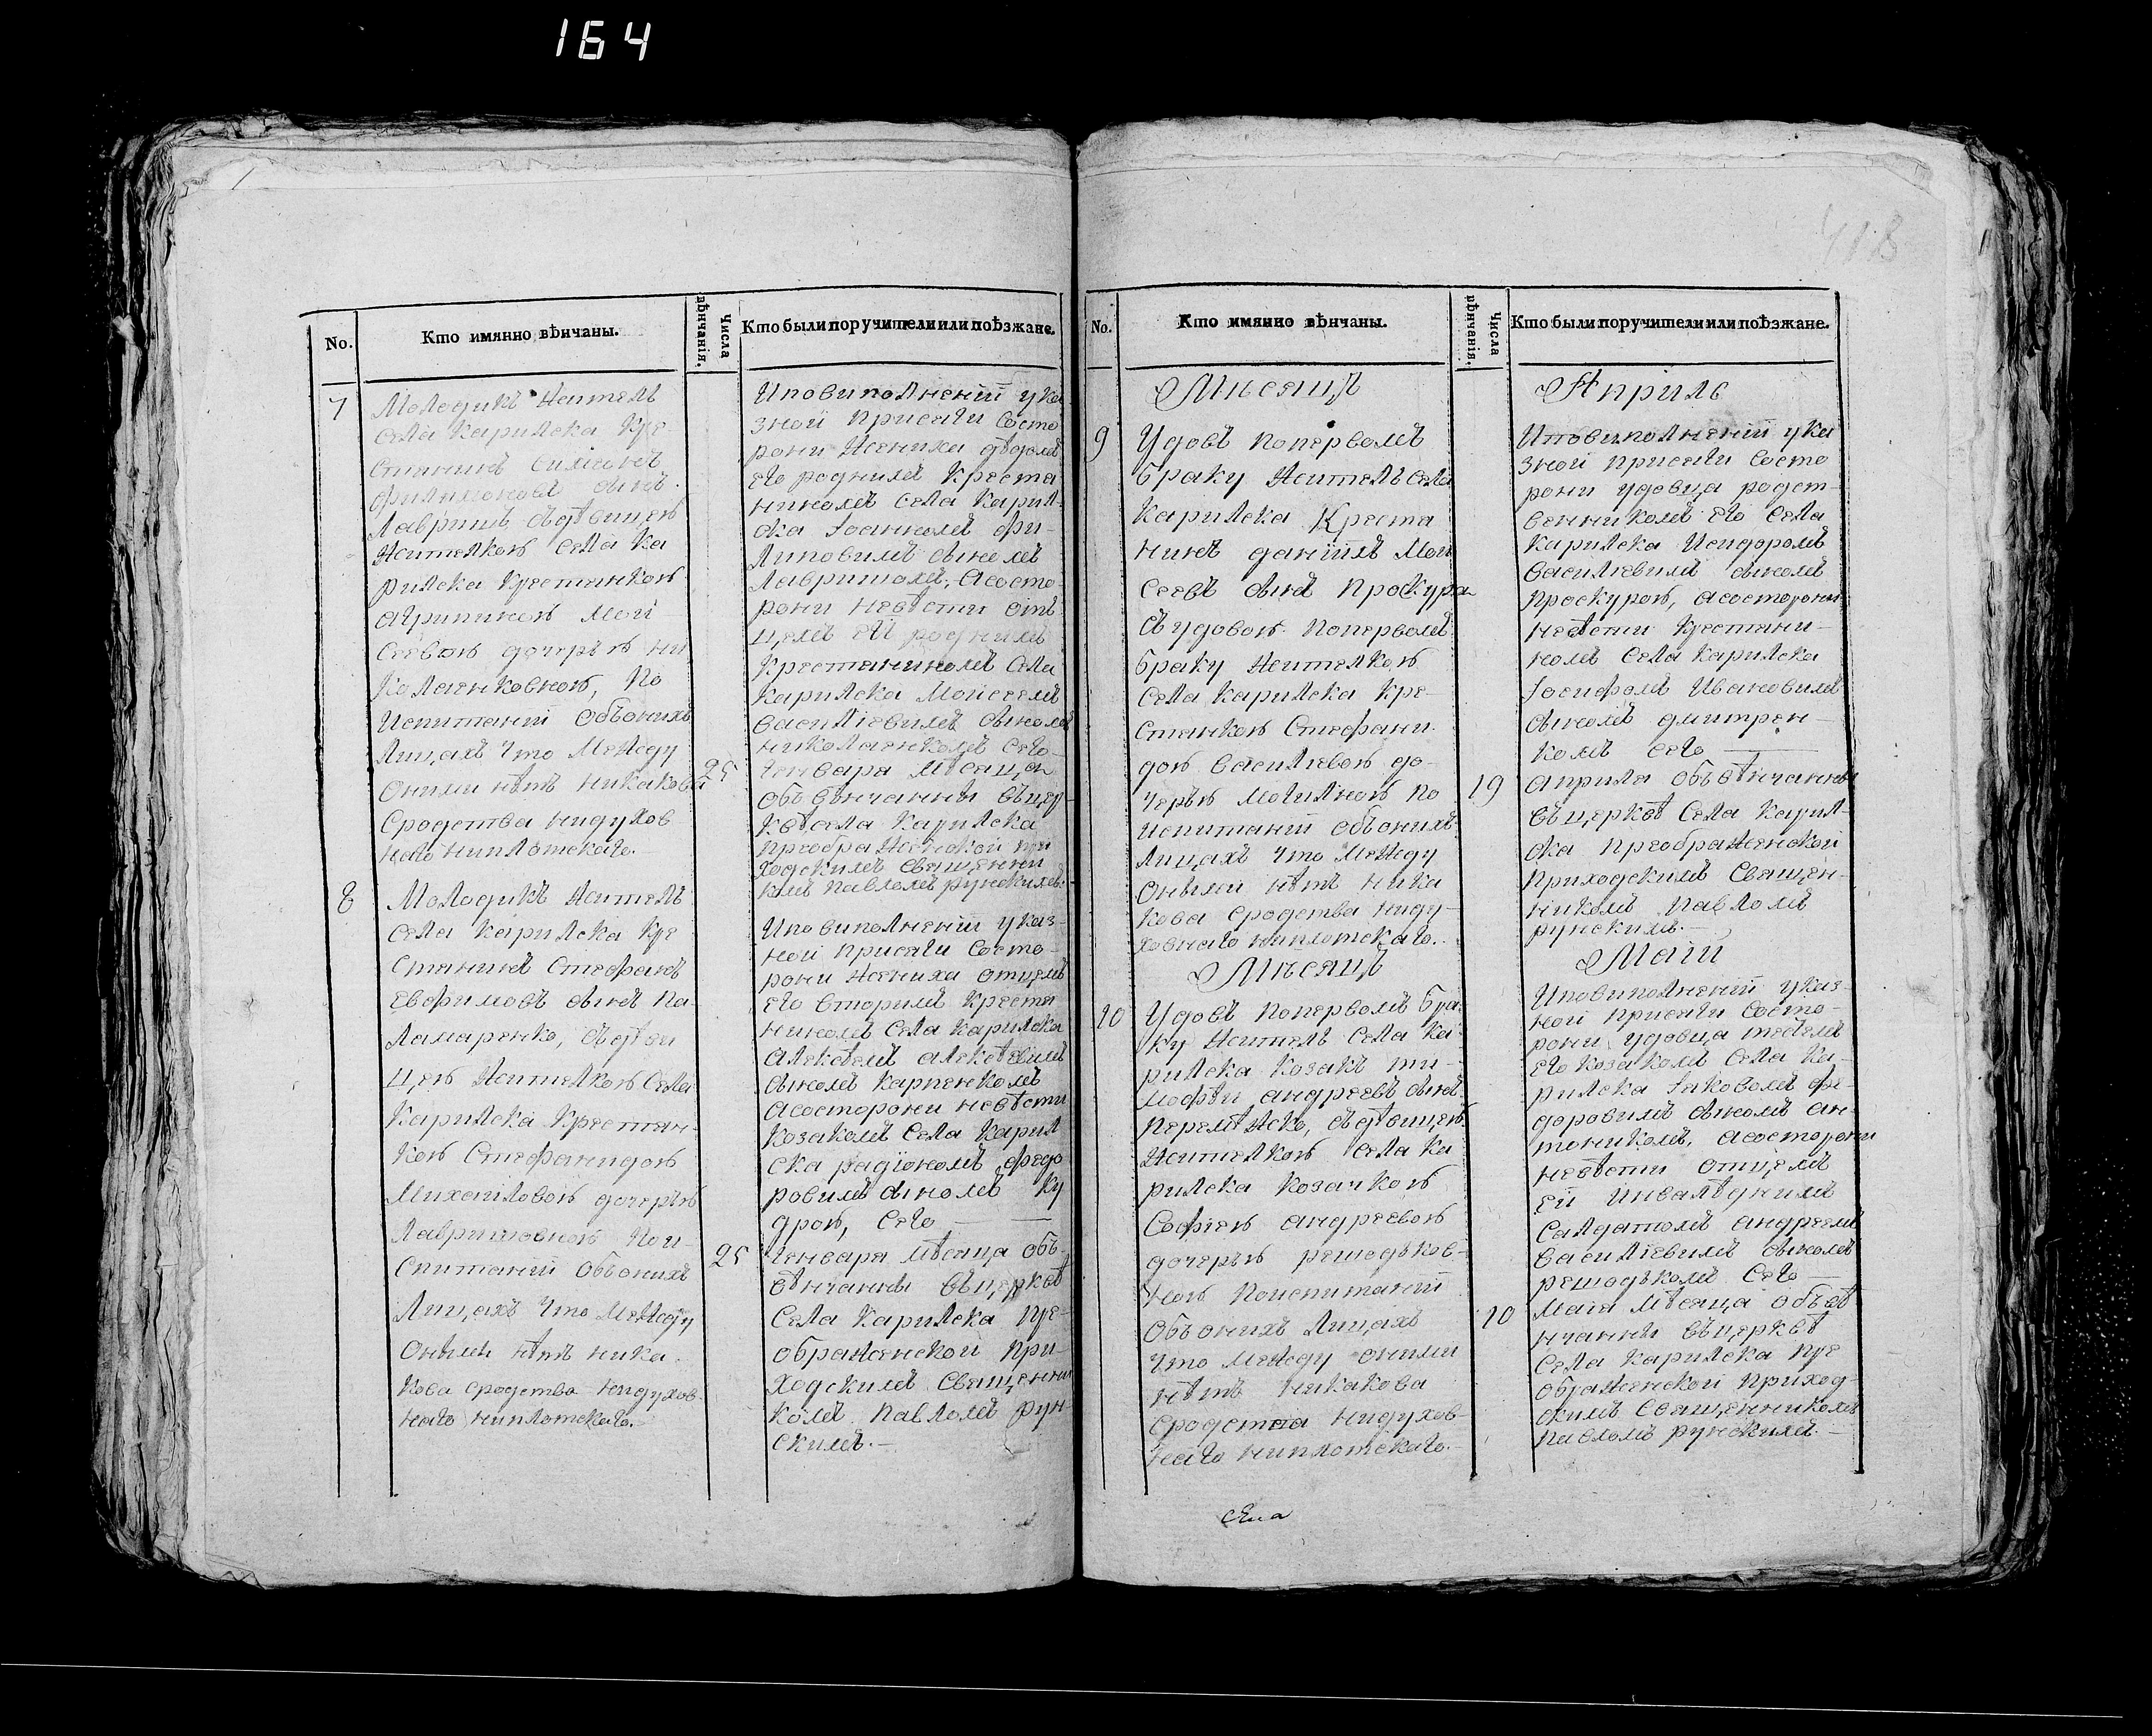 164
418
No.
Кто имянно вѣнчаны.
Числа вѣнчанія.
Кто были поручители или поѣзжане.
7
Молодикъ житель
села Карилска Кре-
стянинъ Симеонъ
Филимоновъ синъ
Лавришъ, сдѣвицею
жителкою села Ка
рилска Крестянкою
Агрипиною Мои
сеевою дочерью Ни
колаенковною, по
испитаніи объонихъ
лицахъ что между
оними нѣтъ никакова
сродства нидухов
наго ниплотскаго.
Иповиполненіи ука
зной присяги Состо
рони жениха дядемъ
его роднимъ Крестя
ниномъ села Карил-
ска Іоанномъ Фи-
липовимъ синомъ
Лавришомъ, Асосто
рони невѣсти отъ
цемъ ей роднимъ
Крестяниномъ села
Карилска Мойсеемъ
Василіевимъ синомъ
Николаенкомъ Сего
25
Генваря мѣсяца
объвѣнчанны вцер-
квѣ села Карилска
преображенской при
ходскимъ священни
комъ Павломъ Рунскимъ.
8
Молодикъ житель
села Карилска Кре
стянинъ Стефанъ
Евфимовъ синъ Па-
ламаренко, сдѣви
цею жителкою села
Карилска Крестян-
кою Стефанидою
Михайловою дочерью
Лавришовною Пои-
спитаніи объонихъ
лицахъ что между
оными нѣтъ ника
кова сродства нидухов-
наго ниплотскаго.
Иповиполненіи указ-
ной присяги Состо-
рони жениха отцемъ
его вторимъ Крестя
ниномъ села Карилска
Алексѣемъ Алексѣевимъ
синомъ Карпенкомъ
Асосторони невѣсти
Козакомъ села Карил
ска Радіономъ Федо
ровимъ синомъ Ку
дрою, Сего
25
Генваря мѣсяца объ-
вѣнчанны вцерквѣ
села Карилска пре-
ображенской при-
ходскимъ священни
комъ Павломъ Рун-
скимъ.
No.
Кто имянно вѣнчаны.
Числа вѣнчанія.
Кто были поручители или поѣзжане.
Мѣсяцъ
Априль
9
Удовъ поперволъ
браку житель села
Карилска Крестя
нинъ Даніилъ Мои
сеевъ синъ Проскура
съ удовою поперволъ
браку жителкою
села Карилска Кре-
стянкою Стефани
дою Василіевою до-
черью Могилною по
испитаніи объонихъ
лицахъ что между
оными нѣтъ ника
кова сродства ниду-
ховнаго ниплотскаго.
Иповиполненіи ука
зной присяги Состо
рони удовца родст-
венникомъ его села
Карилска Исидоромъ
Василіевимъ синомъ
Проскурою, асосторони
невѣсти Крестяни-
номъ села Карилска
Іосифомъ Ивановимъ
синомъ Дмитрен-
комъ Сего
19
Априля объвѣнчанны
въцерквѣ села Карил-
ска преображенской
приходскимъ священ-
никомъ Павломъ
Рунскимъ.
Мѣсяцъ
Маій
10
Удовъ поперволъ бра-
ку житель села Ка
рилска Козакъ Ти-
мофѣй Андреевъ синъ
Перемѣжко, сдѣвицею
жителкою села Ка
рилска Козачкою
Софіею Андреевою
дочерью Решодъков-
ною Поиспитаніи
объонихъ лицахъ
что между оними
нѣтъ никакова
сродства нидухов-
наго ниплотскаго.
Иповиполненіи указ-
ной присяги Состо-
рони удовца тестемъ
его Козакомъ села Ка-
рилска Іаковомъ Фе-
доровимъ синомъ Ан-
тоникомъ, асосторони
невѣсти отцемъ
ей инвалѣднимъ
салдатомъ Андреемъ
Василіевимъ синомъ
Решодькомъ Сего
10
Мая мѣсяца объвѣ
нчанны въцерквѣ
села Карилска пре
ображенской приход-
скимъ священникомъ
Павломъ Рунскимъ.